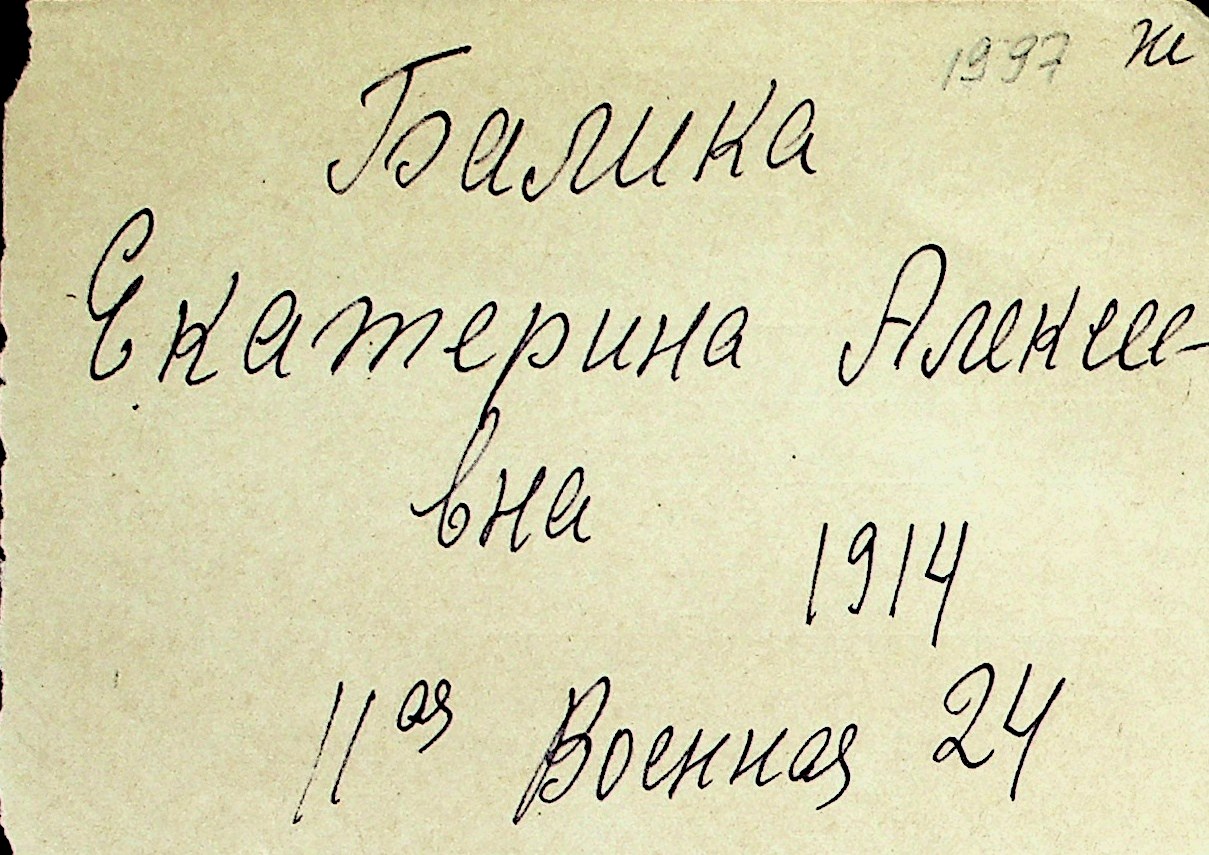 1997 ж
Балика
Екатерина Алексее-
вна
1914
11ая Военная 24